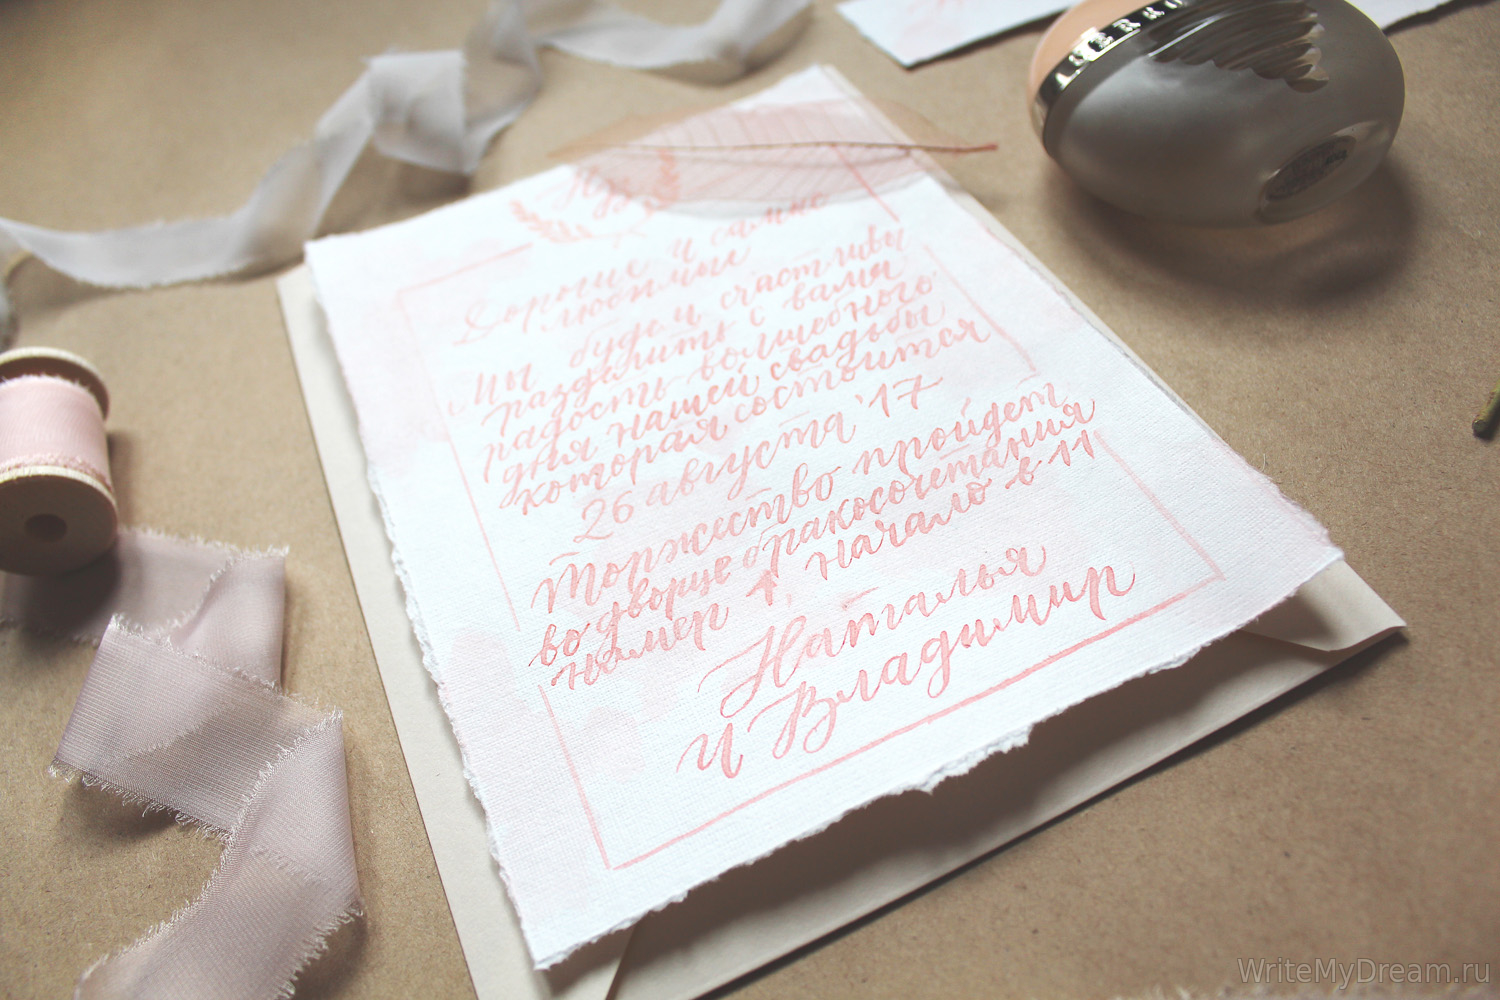 Дорогие и самые
любимые
Мы будем счастливы
разделить с вами
радость волшебного
дня нашей свадьбы
которая состоится
26 августа '17
Торжество пройдет
во дворце бракосочетания
намер 1, начало в 11
Наталья
и Владимир
WriteMyDream.ru